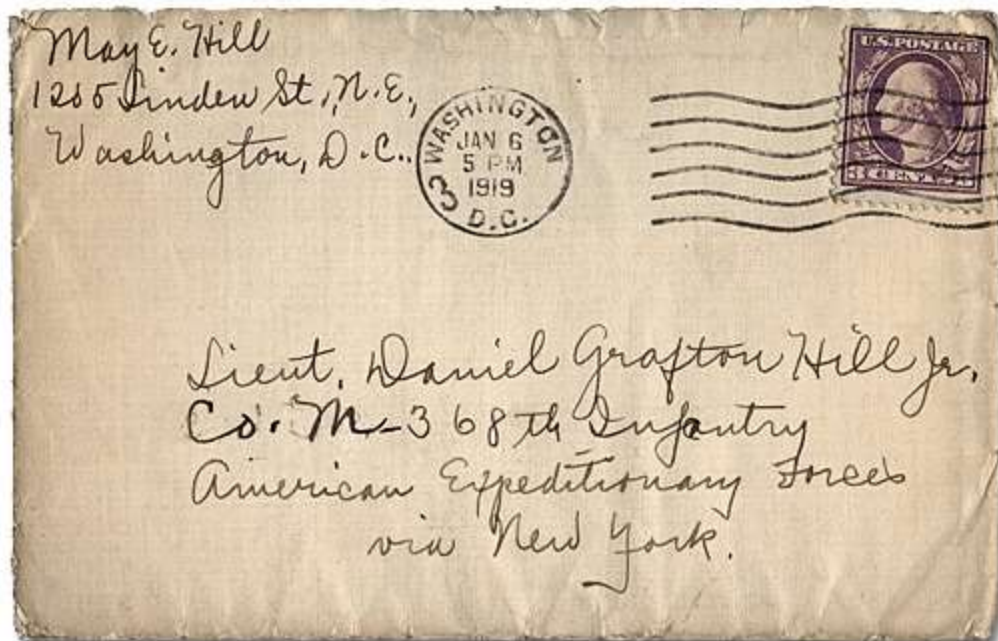 May E. Hill
1205 Linden St., N.E.,
Washington, D.C..
WASHINGTON
JAN 6
5 PM
1919
D.C.
3
U.S. POSTAGE
3 CENTS 3
Lieut. Daniel Grafton Hill Jr.
Co. M-368th Infantry
American Expeditionary Forces
via New York.